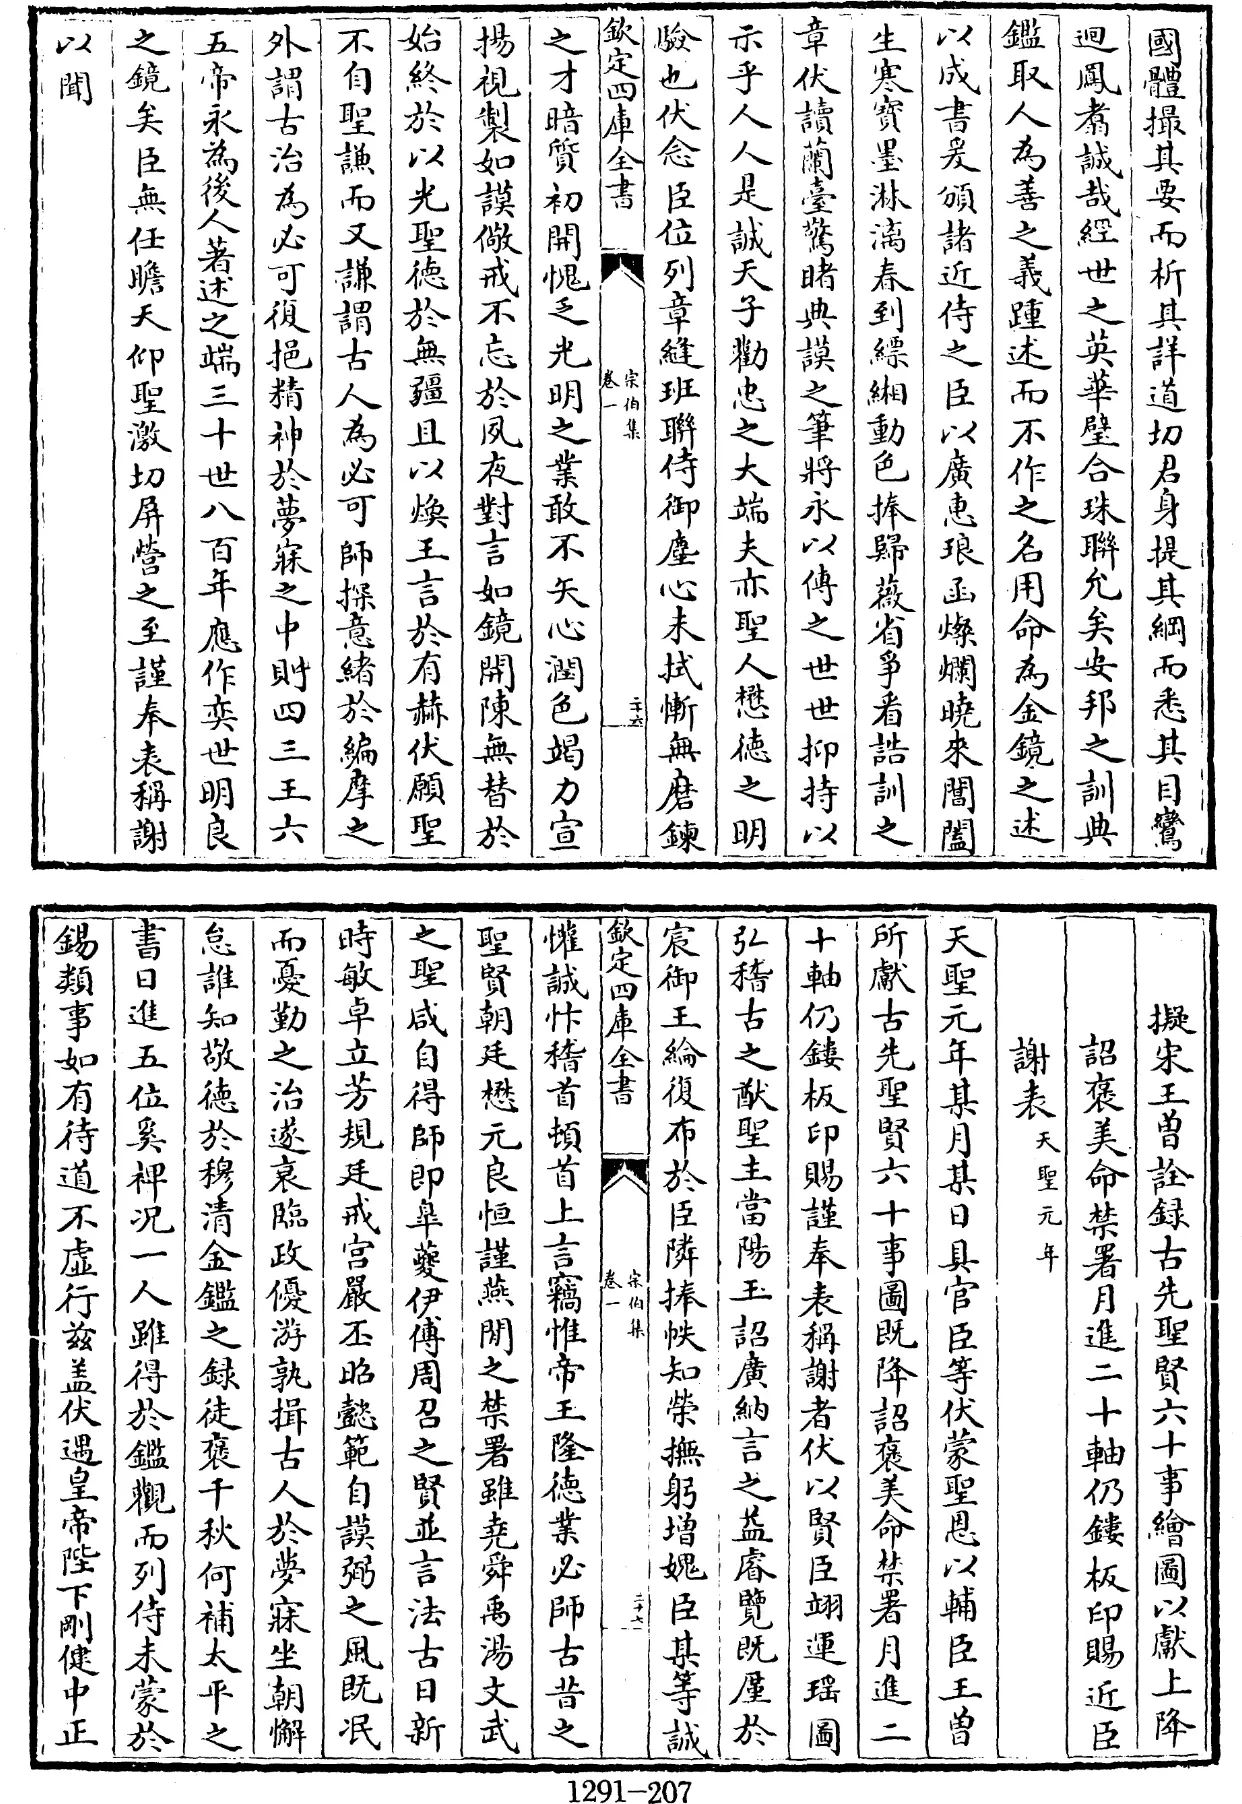 國體撮其要而析其詳道切君身提其綱而悉其目鸞
迴鳳翥誠哉經世之英華璧合珠聯允矣安邦之訓典
鑑取人為善之義踵述而不作之名用命為金鏡之述
以成書爰頒諸近侍之臣以廣惠琅函燦爛曉來閶闔
生寒寳墨淋漓春到縹緗動色捧歸薇省爭看誥訓之
章伏讀蘭臺驚睹典謨之筆將永以傳之世世抑持以
示乎人人是誠天子勸忠之大端夫亦聖人懋德之明
驗也伏念臣位列章縫班聯侍御塵心未拭慚無磨鍊
欽定四庫全書
宗伯集
卷一
二十六
之才暗質初開愧乏光明之業敢不矢心潤色竭力宣
揚視製如謨儆戒不忘於夙夜對言如鏡開陳無替於
始終於以光聖德於無疆且以煥王言於有赫伏願聖
不自聖謙而又謙謂古人為必可師探意緒於編摩之
外謂古治為必可復挹精神於夢寐之中則四三王六
五帝永為後人著述之端三十世八百年應作奕世明良
之鏡矣臣無任瞻天仰聖激切屏營之至謹奉表稱謝
以聞
擬宋王曾詮録古先聖賢六十事繪圖以獻上降
詔褒美命禁署月進二十軸仍鏤板印賜近臣
謝表天聖元年
天聖元年某月某日具官臣等伏蒙聖恩以輔臣王曾
所獻古先聖賢六十事圖既降詔褒美命禁署月進二
十軸仍鏤板印賜謹奉表稱謝者伏以賢臣翊運瑶圖
弘稽古之猷聖主當陽玉詔廣納言之益睿覽既廑於
宸御王綸復布於臣隣捧帙知榮撫躬增媿臣某等誠
欽定四庫全書
宗伯集
卷一
二十七
懽誠忭稽首頓首上言竊惟帝王隆德業必師古昔之
聖賢朝廷懋元良恒謹燕閒之禁署雖堯舜禹湯文武
之聖咸自得師即臯夔伊傅周召之賢並言法古日新
時敏卓立芳規廷戒宫嚴丕昭懿範自謨弼之風既泯
而憂勤之治遂衰臨政優游孰揖古人於夢寐坐朝懈
怠誰知敬德於穆清金鑑之録徒褒千秋何補太平之
書日進五位奚裨况一人雖得於鑑觀而列侍未蒙於
錫類事如有待道不虛行兹盖伏遇皇帝陛下剛健中正
1291-207